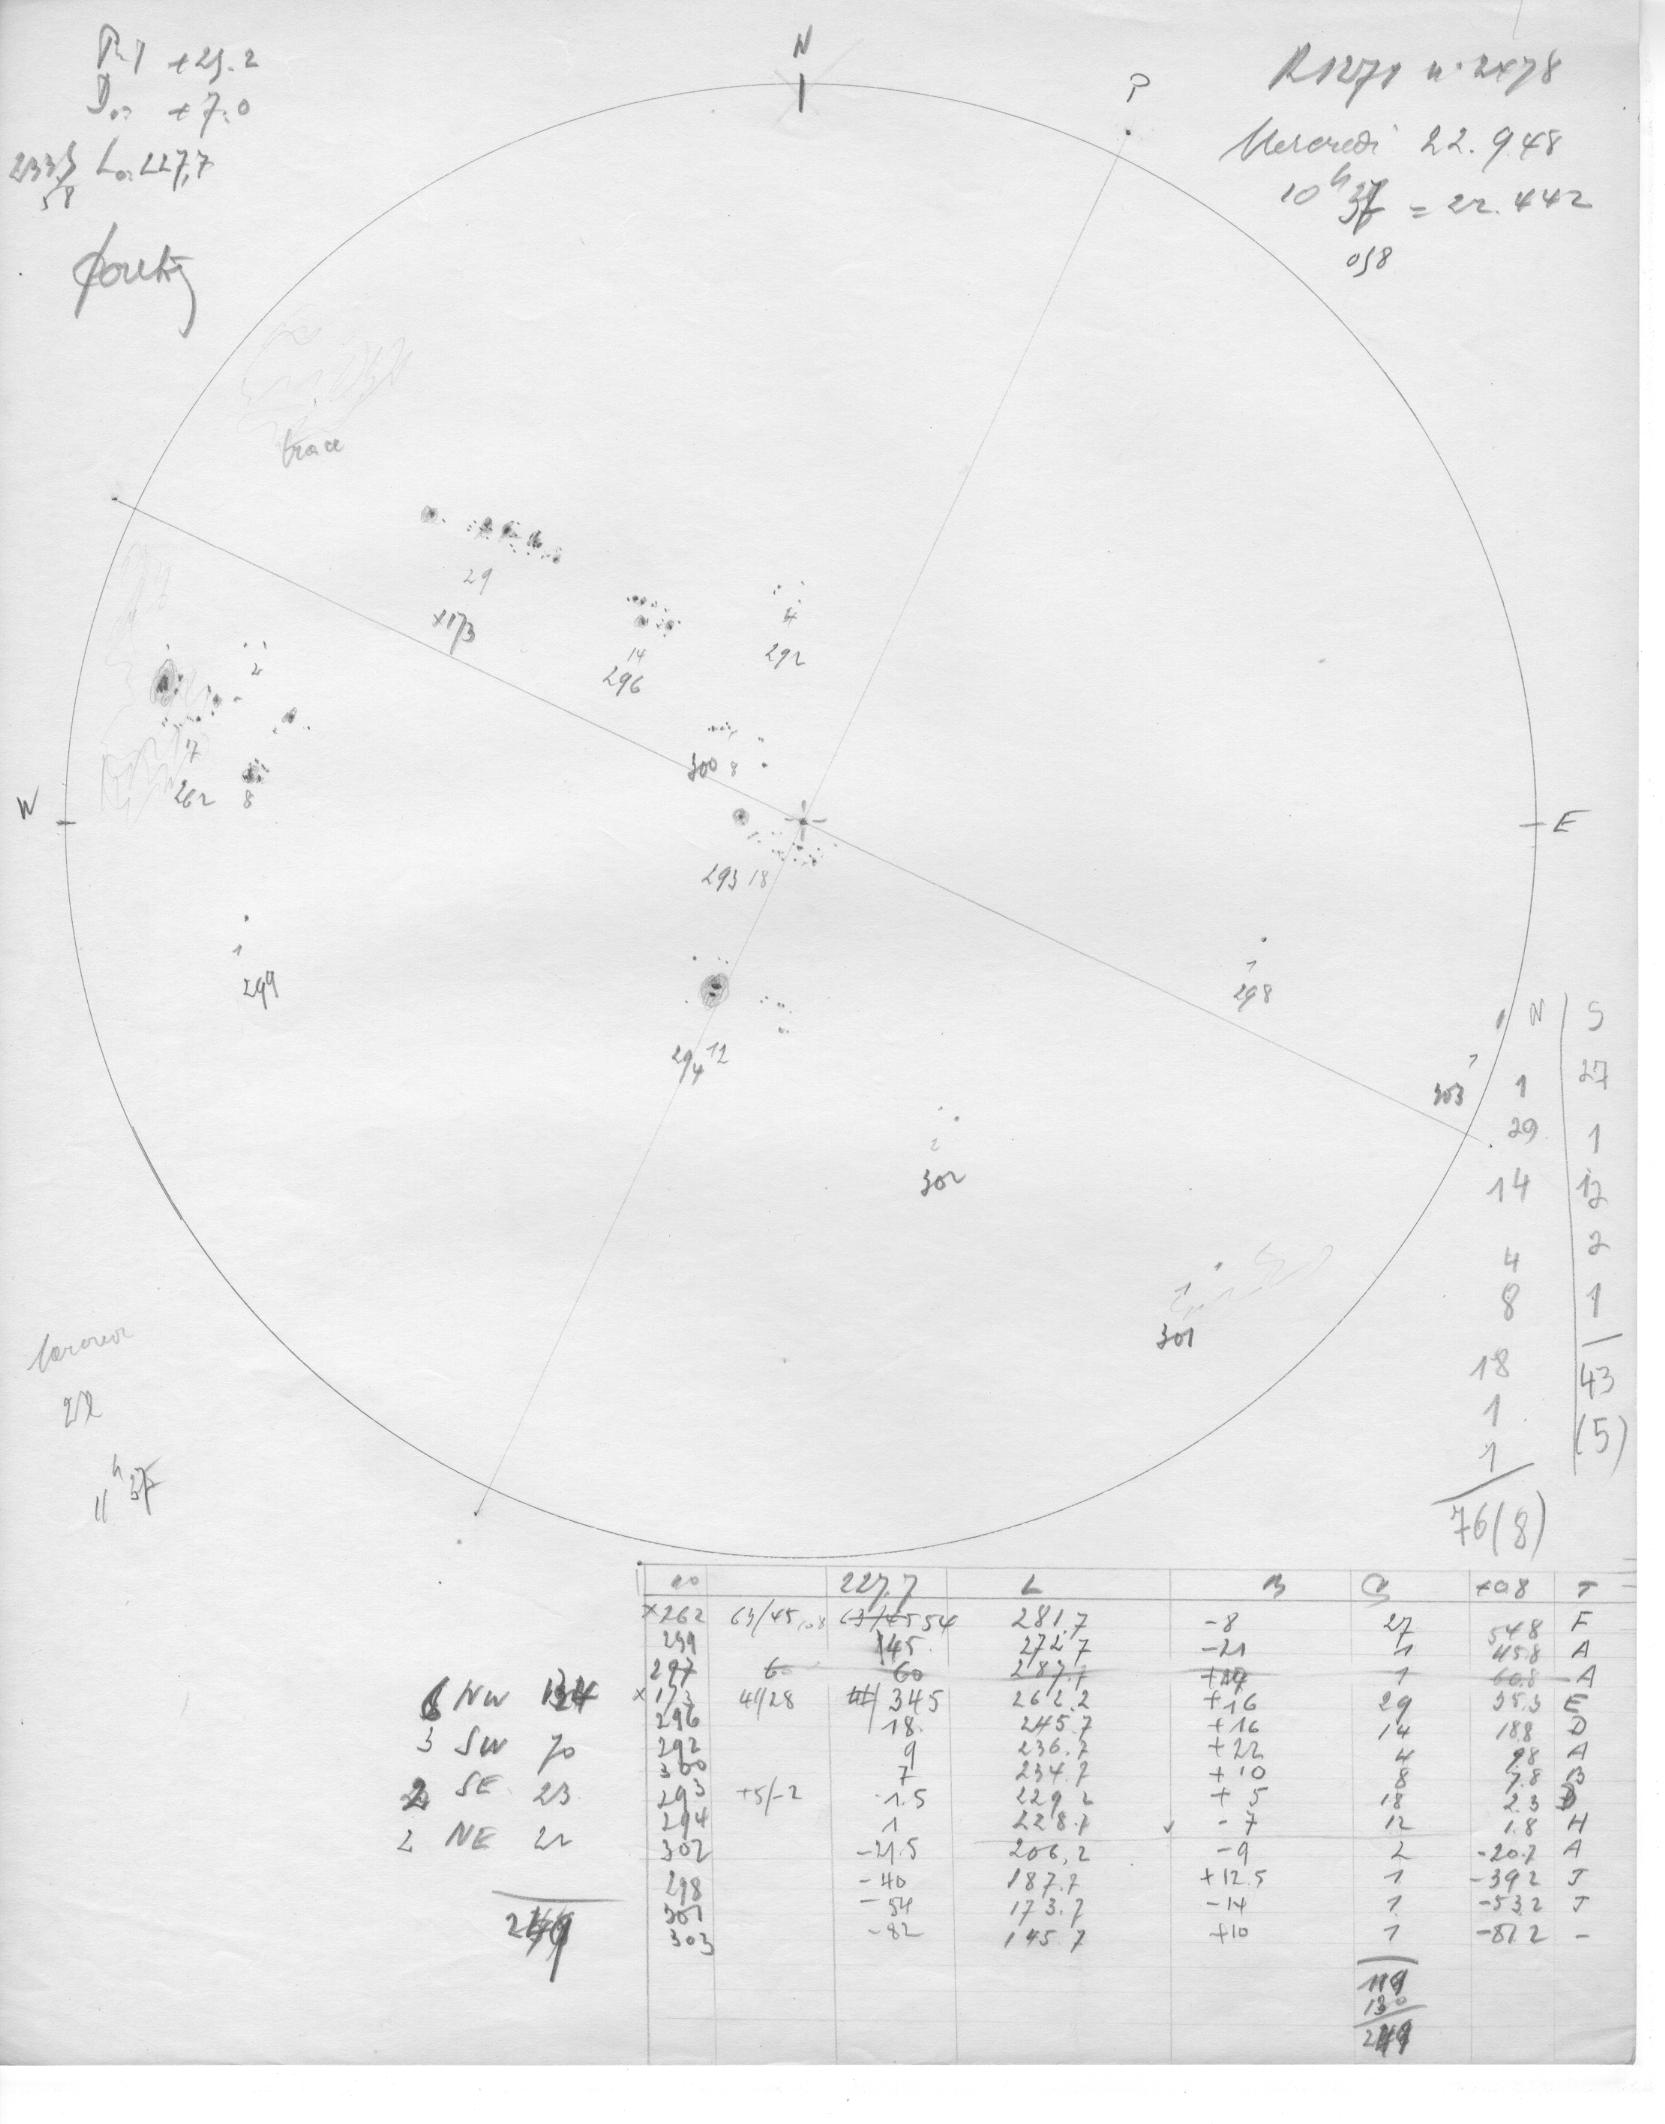 N
P
P=1 +25.2
D= +7.0
L= 227,7
R1271 n. 2478
Mercredi 22.9.48
10h 37 = 22.442
058
trace
29
×173
14
296
4
292
2
17
262
8
300 8
W
E
293 18
1
299
1
298
294 12
1
303
2
302
1
301
22
11h 37
N | S
1 27
29 1
14 12
4 2
8 1
18 43
1 (5)
1
76(8)
no 227.7 L B +0.8 T
×262 63/45 54 281.7 -8 27 54.8 F
299 45 272.7 -21 1 45.8 A
297 60 60 1 60.8 A
×173 41/28 345 262.2 +16 29 35.3 E
296 18 245.7 +16 14 18.8 D
292 9 236.7 +22 4 9.8 A
300 7 234.7 +10 8 7.8 B
293 +5/-2 1.5 229.2 +5 18 2.3 D
294 1 228.7 -7 12 1.8 H
302 -21.5 206,2 -9 2 -20.7 A
298 -40 187.7 +12.5 1 -39.2 J
301 -54 173.7 -14 1 -53.2 J
303 -82 145.7 +10 1 -81.2 -
NW
3 SW 70
2 SE 23
2 NE 22
119
130
249